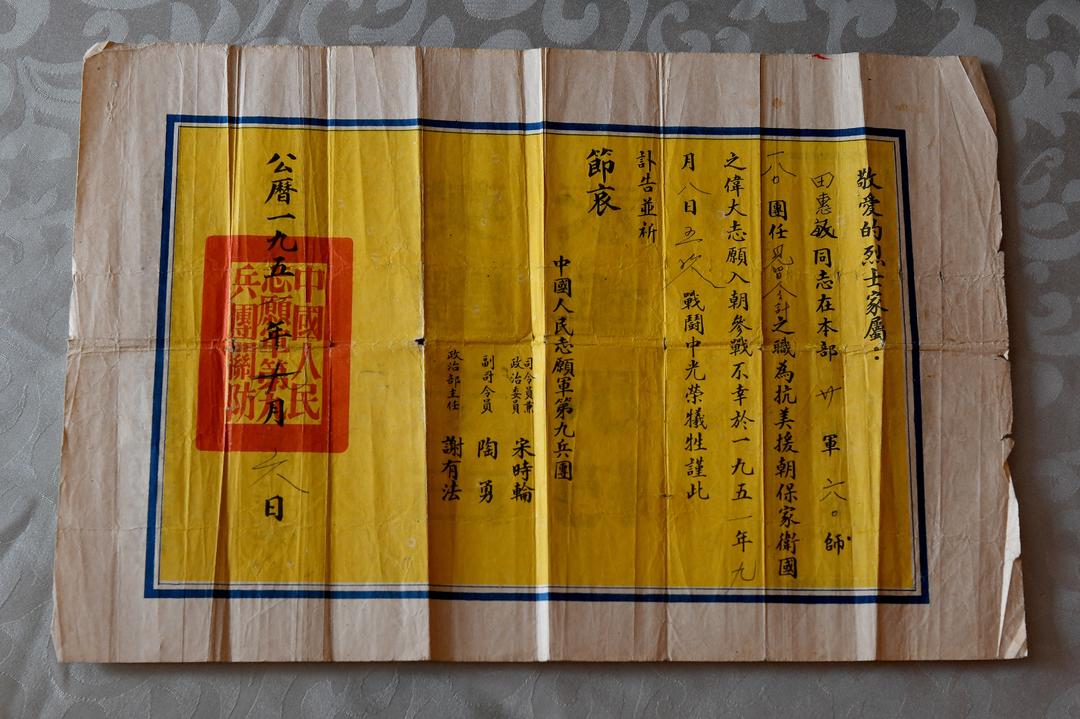 敬愛的烈士家屬：
田惠敏同志在本部廿軍六〇師
一八〇團任見習会計之職為抗美援朝保家衛國
之偉大志願入朝參戰不幸於一九五一年九
月八日五次戰鬪中光榮犧牲謹此
訃告並祈
節哀
中國人民志願軍第九兵團
司令員兼政治委員 宋時輪
副司令員 陶勇
政治部主任 謝有法
公曆一九五年十月六日
中國人民
志願軍第九
兵團關防